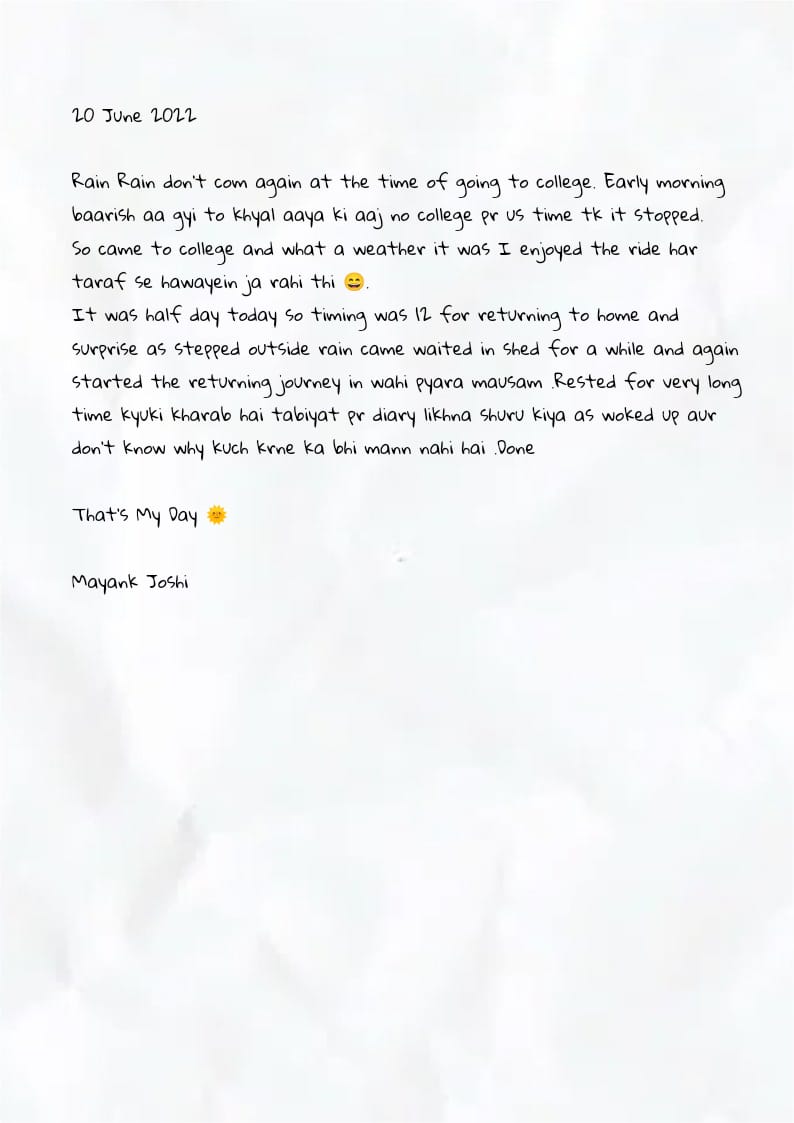 20 June 2022
Rain Rain don't com again at the time of going to college. Early morning
baarish aa gyi to khyal aaya ki aaj no college pr us time tk it stopped.
So came to college and what a weather it was I enjoyed the ride har
taraf se hawayein ja rahi thi 😄.
It was half day today so timing was 12 for returning to home and
surprise as stepped outside rain came waited in shed for a while and again
started the returning journey in wahi pyara mausam .Rested for very long
time kyuki kharab hai tabiyat pr diary likhna shuru kiya as woked up aur
don't know why kuch krne ka bhi mann nahi hai .Done
That's My Day 🌞
Mayank Joshi